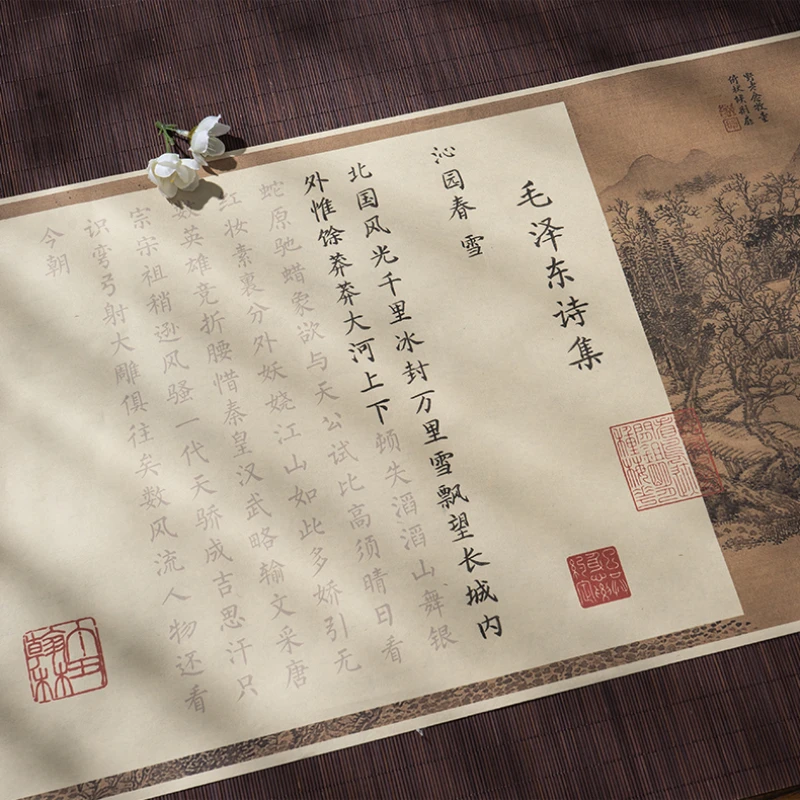 毛泽东诗集
沁园春 雪
北国风光千里冰封万里雪飘望长城内
外惟馀莽莽大河上下顿失滔滔山舞银
蛇原驰蜡象欲与天公试比高须晴日看
红妆素裹分外妖娆江山如此多娇引无
数英雄竞折腰惜秦皇汉武略输文采唐
宗宋祖稍逊风骚一代天骄成吉思汗只
识弯弓射大雕俱往矣数风流人物还看
今朝